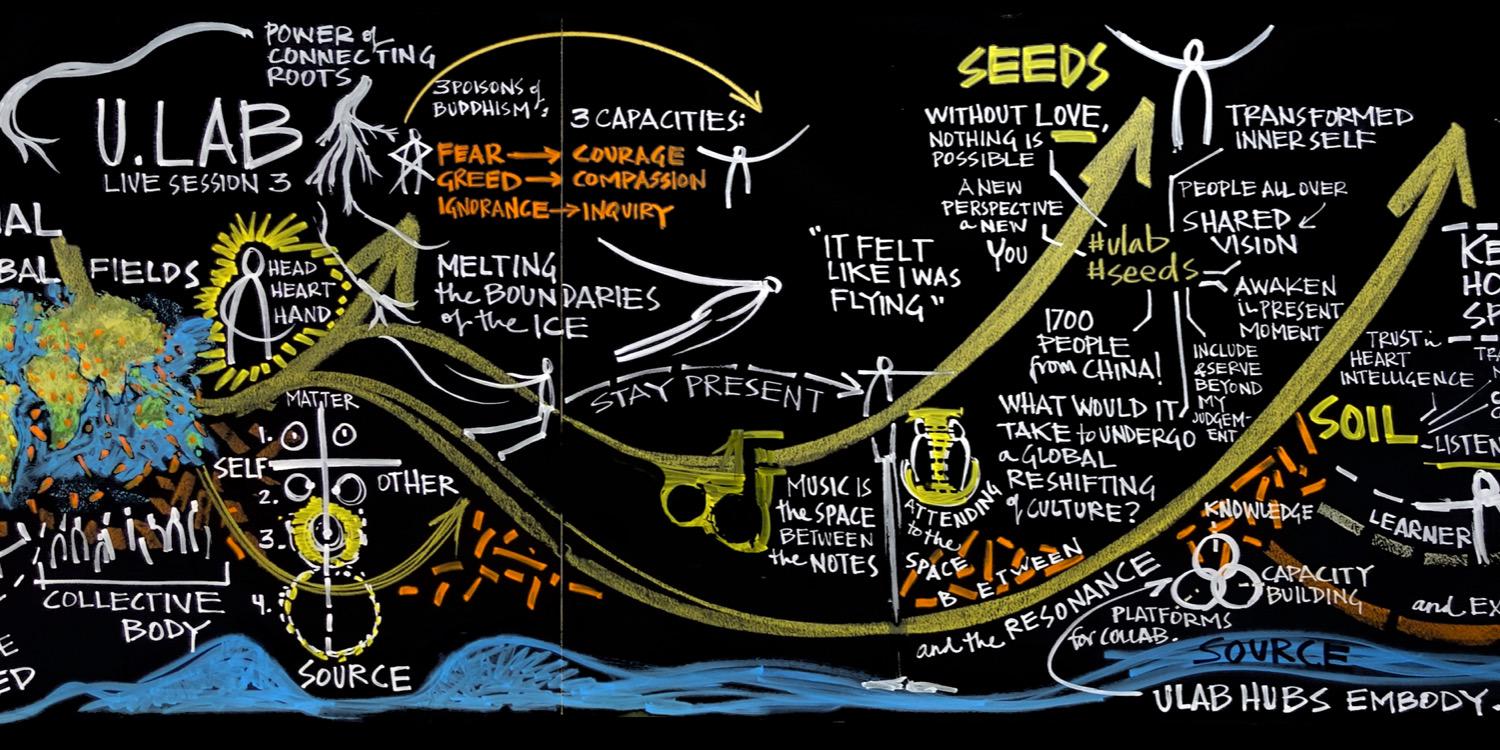 POWER of
CONNECTING
ROOTS
U.LAB
LIVE SESSION 3
3 POISONS of
BUDDHISM:
3 CAPACITIES:
FEAR → COURAGE
GREED → COMPASSION
IGNORANCE → INQUIRY
FIELDS
HEAD
HEART
HAND
MELTING
the BOUNDARIES
of the ICE
STAY PRESENT
MATTER
1.
SELF
OTHER
2.
3.
4.
SOURCE
COLLECTIVE
BODY
"IT FELT
LIKE I WAS
FLYING"
MUSIC IS
the SPACE
BETWEEN
the NOTES
ATTENDING
to the
SPACE
BETWEEN
and the RESONANCE
SEEDS
WITHOUT LOVE,
NOTHING IS
POSSIBLE
A NEW
PERSPECTIVE
a NEW
YOU
#ulab
#seeds
1700
PEOPLE
from CHINA!
WHAT WOULD IT
TAKE to UNDERGO
a GLOBAL
RESHIFTING
of CULTURE?
TRANSFORMED
INNER SELF
PEOPLE ALL OVER
SHARED
VISION
AWAKEN
in PRESENT
MOMENT
INCLUDE
& SERVE
BEYOND
MY
JUDGEM-
ENT
TRUST in
HEART
INTELLIGENCE
SOIL
LISTEN
KNOWLEDGE
LEARNER
CAPACITY
BUILDING
PLATFORMS
for COLLAB.
and EX
SOURCE
ULAB HUBS EMBODY